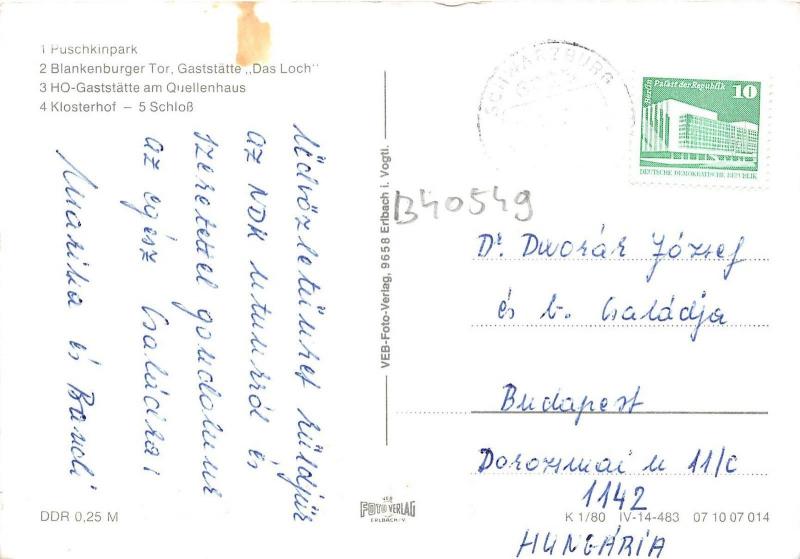 1 Puschkinpark
2 Blankenburger Tor, Gaststätte „Das Loch“
3 HO-Gaststätte am Quellenhaus
4 Klosterhof – 5 Schloß
Üdvözletünket küldjük
az NDK utunkról és
szeretettel gondolunk
az egész Családra!
Marika és Bandi
DDR 0,25 M
VEB-Foto-Verlag, 9658 Erlbach i. Vogtl.
VEB
FOTO VERLAG
ERLBACH/V.
SCHWARZBURG
Berlin Palast der Republik 10
DEUTSCHE DEMOKRATISCHE REPUBLIK
B40549
Dr. Dworák József
és b. Családja
Budapest
Dorozsmai u 11/c
1142
HUNGÁRIA
K 1/80 IV-14-483 07 10 07 014